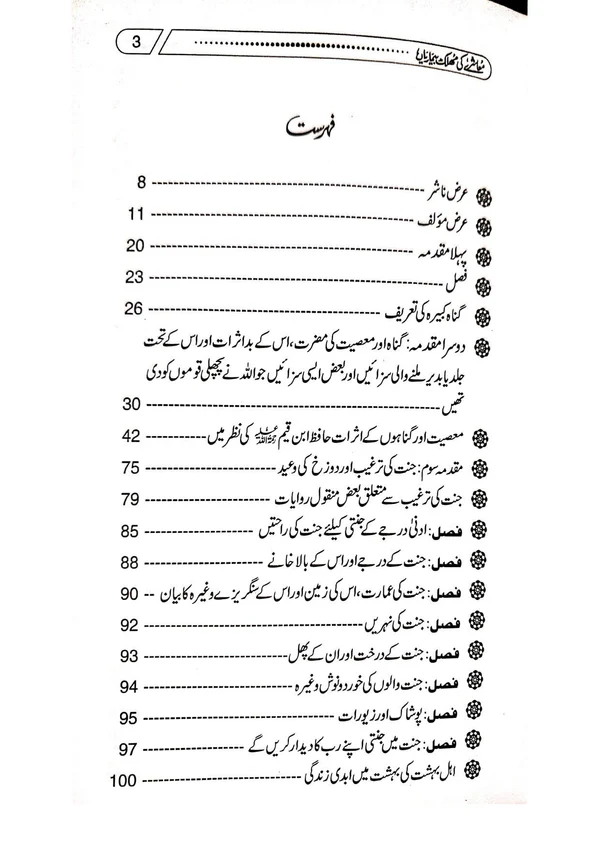 معاشرے کی مہلک بیماریاں 3
فہرست
عرض ناشر 8
عرض مؤلف 11
پہلا مقدمہ 20
فصل 23
گناہ کبیرہ کی تعریف 26
دوسرا مقدمہ: گناہ اور معصیت کی مضرت، اس کے بد اثرات اور اس کے تحت
جلد یا بدیر ملنے والی سزائیں اور بعض ایسی سزائیں جو اللہ نے پچھلی قوموں کو دی
تھیں 30
معصیت اور گناہوں کے اثرات حافظ ابن قیم رحمۃ اللہ علیہ کی نظر میں 42
مقدمہ سوم: جنت کی ترغیب اور دوزخ کی وعید 75
جنت کی ترغیب سے متعلق بعض منقول روایات 79
فصل: ادنیٰ درجے کے جنتی کیلئے جنت کی راحتیں 85
فصل: جنت کے درجے اور اس کے بالا خانے 88
فصل: جنت کی عمارت، اس کی زمین اور اس کے سنگریزے وغیرہ کا بیان 90
فصل: جنت کی نہریں 92
فصل: جنت کے درخت اور ان کے پھل 93
فصل: جنت والوں کی خورد و نوش وغیرہ 94
فصل: پوشاک اور زیورات 95
فصل: جنت میں جنتی اپنے رب کا دیدار کریں گے 97
اہل بہشت کی بہشت میں ابدی زندگی 100